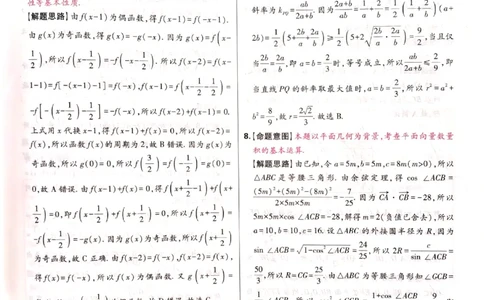 性等基本性质.
【解题思路】由f(x-1)为偶函数,得f(x-1)=f(-x-1).
由g(x)为奇函数,得g(x)=-g(-x).因为g(x)=f(x-
1/2),所以f(x-1/2)=-f(-x-1/2).所以f(x-2)=f(x-
1-1)=f[-(x-1)-1]=f(-x),所以f(-x)=f(-x+1/2-1/2)=
-f[-(-x+1/2)-1/2]=-f(x-1),所以f(x-2)+f(x-1)=0.
上式用x代换x-1,得f(x-1)+f(x)=0,所以f(x-2)=
f(x),所以函数f(x)的周期为2,故B错误.因为g(x)为
奇函数,所以g(0)=0,所以f(3/2)=f(-1/2)=g(0)=
0,故A错误.由f(x-1)+f(x)=0,得f(x+1/2-1)+f(x+
1/2)=0,即f(x-1/2)+f(x+1/2)=0,所以f(x+1/2)=
-f(x-1/2)=-g(x).因为g(x)为奇函数,所以f(x+1/2)
为奇函数,故C正确.由f(x-2)=f(-x),f(x-2)=f(x),
得f(x)=f(-x),所以f(x)为偶函数.又g(x+1/2)=
斜率为k_{PQ}=ab/(2a+b).因为(2a+b)/ab=1/a+2/b=1/2(1/a+2/b)(a+
2b)=1/2(5+2b/a+2a/b)≥1/2(5+2√(2b/a·2a/b))=9/2,当且仅
当2b/a=2a/b,即a=b=2/3时,等号成立,所以ab/(2a+b)≤2/9,即
当直线PQ的斜率取最大值时,a=b=2/3,所以r²=a²+
b²=8/9,故r=2√2/3.故选B.
8.【命题意图】本题以平面几何为背景,考查平面向量数量
积的基本运算.
【解题思路】由已知,令a=5m,b=5m,c=8m(m>0),所以
△ABC是等腰三角形.由余弦定理,得cos∠ACB=
((5m)²+(5m)²-(8m)²)/(2×5m×5m)=-7/25.因为CA·CB=-28,所以
5m×5m×cos∠ACB=-28,解得m=2(负值已舍去),所以
a=10,b=10,c=16.设△ABC的外接圆半径为R,因为
sin∠ACB=√(1-cos²∠ACB)=24/25,所以2R=c/sin∠ACB=
50/3,所以R=CG=25/3.由△ABC为等腰三角形知∠GCB=